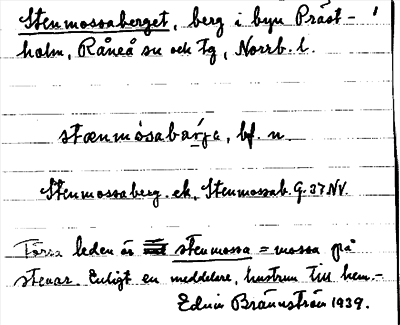 Stenmossaberget, berg i byn Präst-
holm, Råneå sn och tg, Norrb. l.
stænmåsabarja, bf. n.
Stenmossaberg. ek. Stenmossab. G. 37 NV
Förra leden är stenmossa = mossa på
stenar. Enligt en meddelare, hustrun till hem.-
Edvin Brännström 1939.